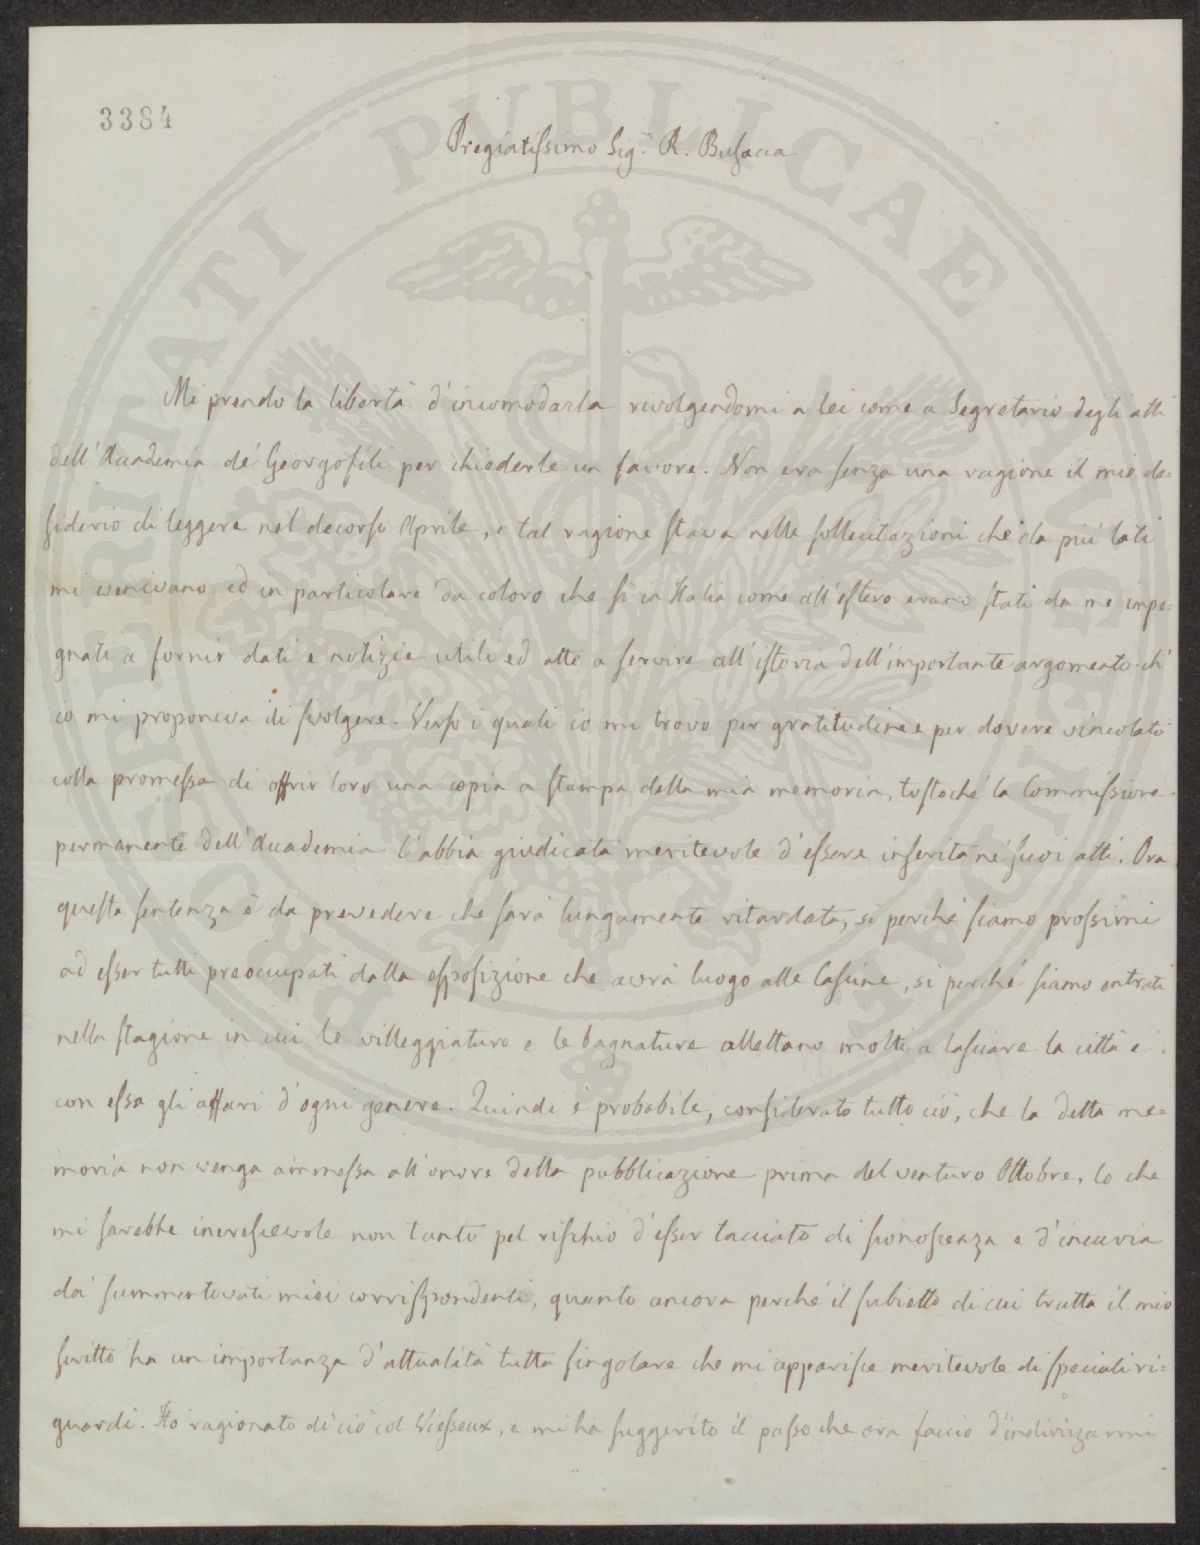 3384
Pregiatissimo Sig.r R. Busacca
Mi prendo la libertà d'incomodarla rivolgendomi a lei come a Segretario degli atti
dell'Accademia de' Georgofili per chiederle un favore. Non era senza una ragione il mio de=
siderio di leggere nel decorso Aprile, e tal ragione stava nelle sollecitazioni che da più lati
mi venivano ed in particolare da coloro che sì in Italia come all'estero erano stati da me impe=
gnati a fornir dati e notizie utili ed atte a servire all'istoria dell'importante argomento ch'
io mi proponeva di svolgere. Verso i quali io mi trovo per gratitudine e per dovere vincolato
colla promessa di offrir loro una copia a stampa della mia memoria, tostoché la Commissione
permanente dell'Accademia l'abbia giudicata meritevole d'essere inserita ne' suoi atti. Ora
questa sentenza è da prevedere che sarà lungamente ritardata, sì perché siamo prossimi
ad esser tutti preoccupati dalla esposizione che avrà luogo alle Cascine, sì perché siamo entrati
nella stagione in cui le villeggiature e le bagnature allettano molti a lasciare la città e
con essa gli affari d'ogni genere. Quindi è probabile, considerato tutto ciò, che la detta me=
moria non venga ammessa all'onore della pubblicazione prima del venturo Ottobre, lo che
mi sarebbe increscevole non tanto pel rischio d'esser tacciato di sconoscenza e d'incuria
da' summentovati miei corrispondenti, quanto ancora perché il subietto di cui tratta il mio
scritto ha un importanza d'attualità tutta singolare che mi apparisce meritevole di speciali ri=
guardi. Ho ragionato di ciò col Viesseux, e mi ha suggerito il passo che ora faccio d'indirizzarmi